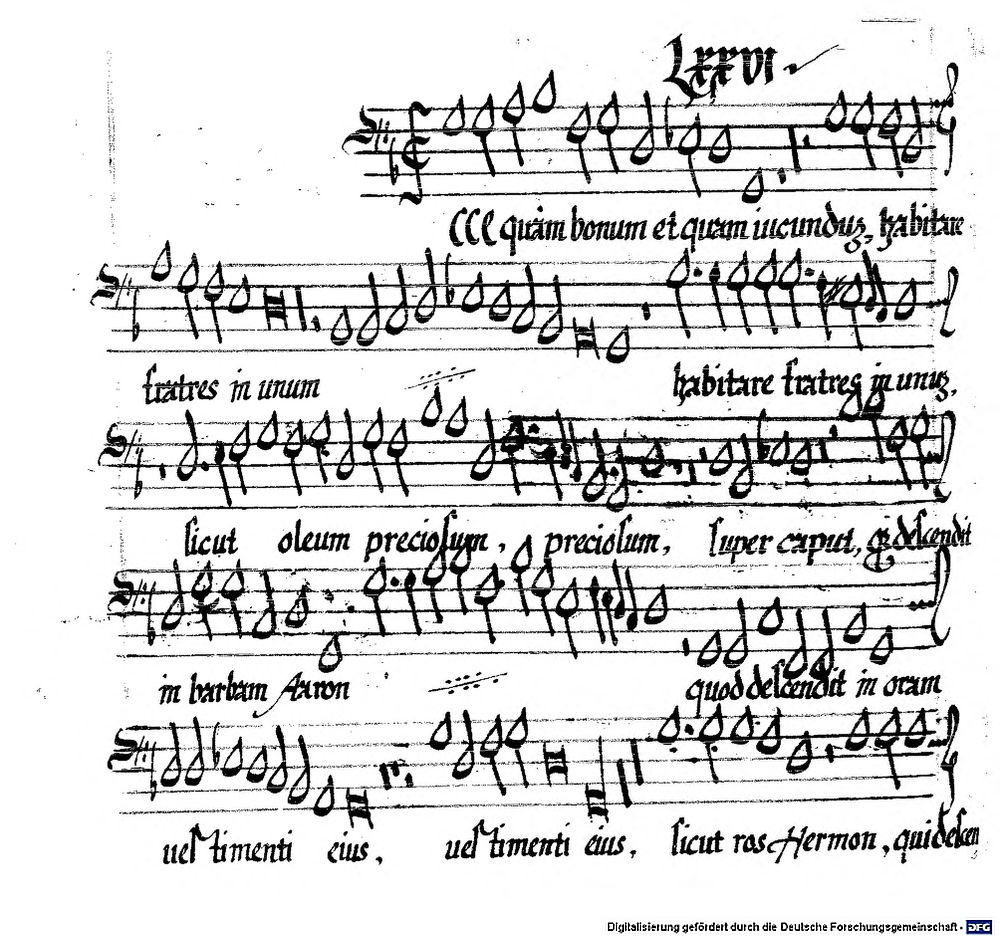 LXXVI.
CCE quàm bonum et quam iucunduʒ, habitare
fratres in unum habitare fratres in unuʒ,
sicut oleum preciosum, preciosum, super caput, qd descendit
in barbam Aaron quod descendit in oram
uestimenti eius, uestimenti eius, sicut ros Hermon, qui descen
Digitalisierung gefördert durch die Deutsche Forschungsgemeinschaft - DFG